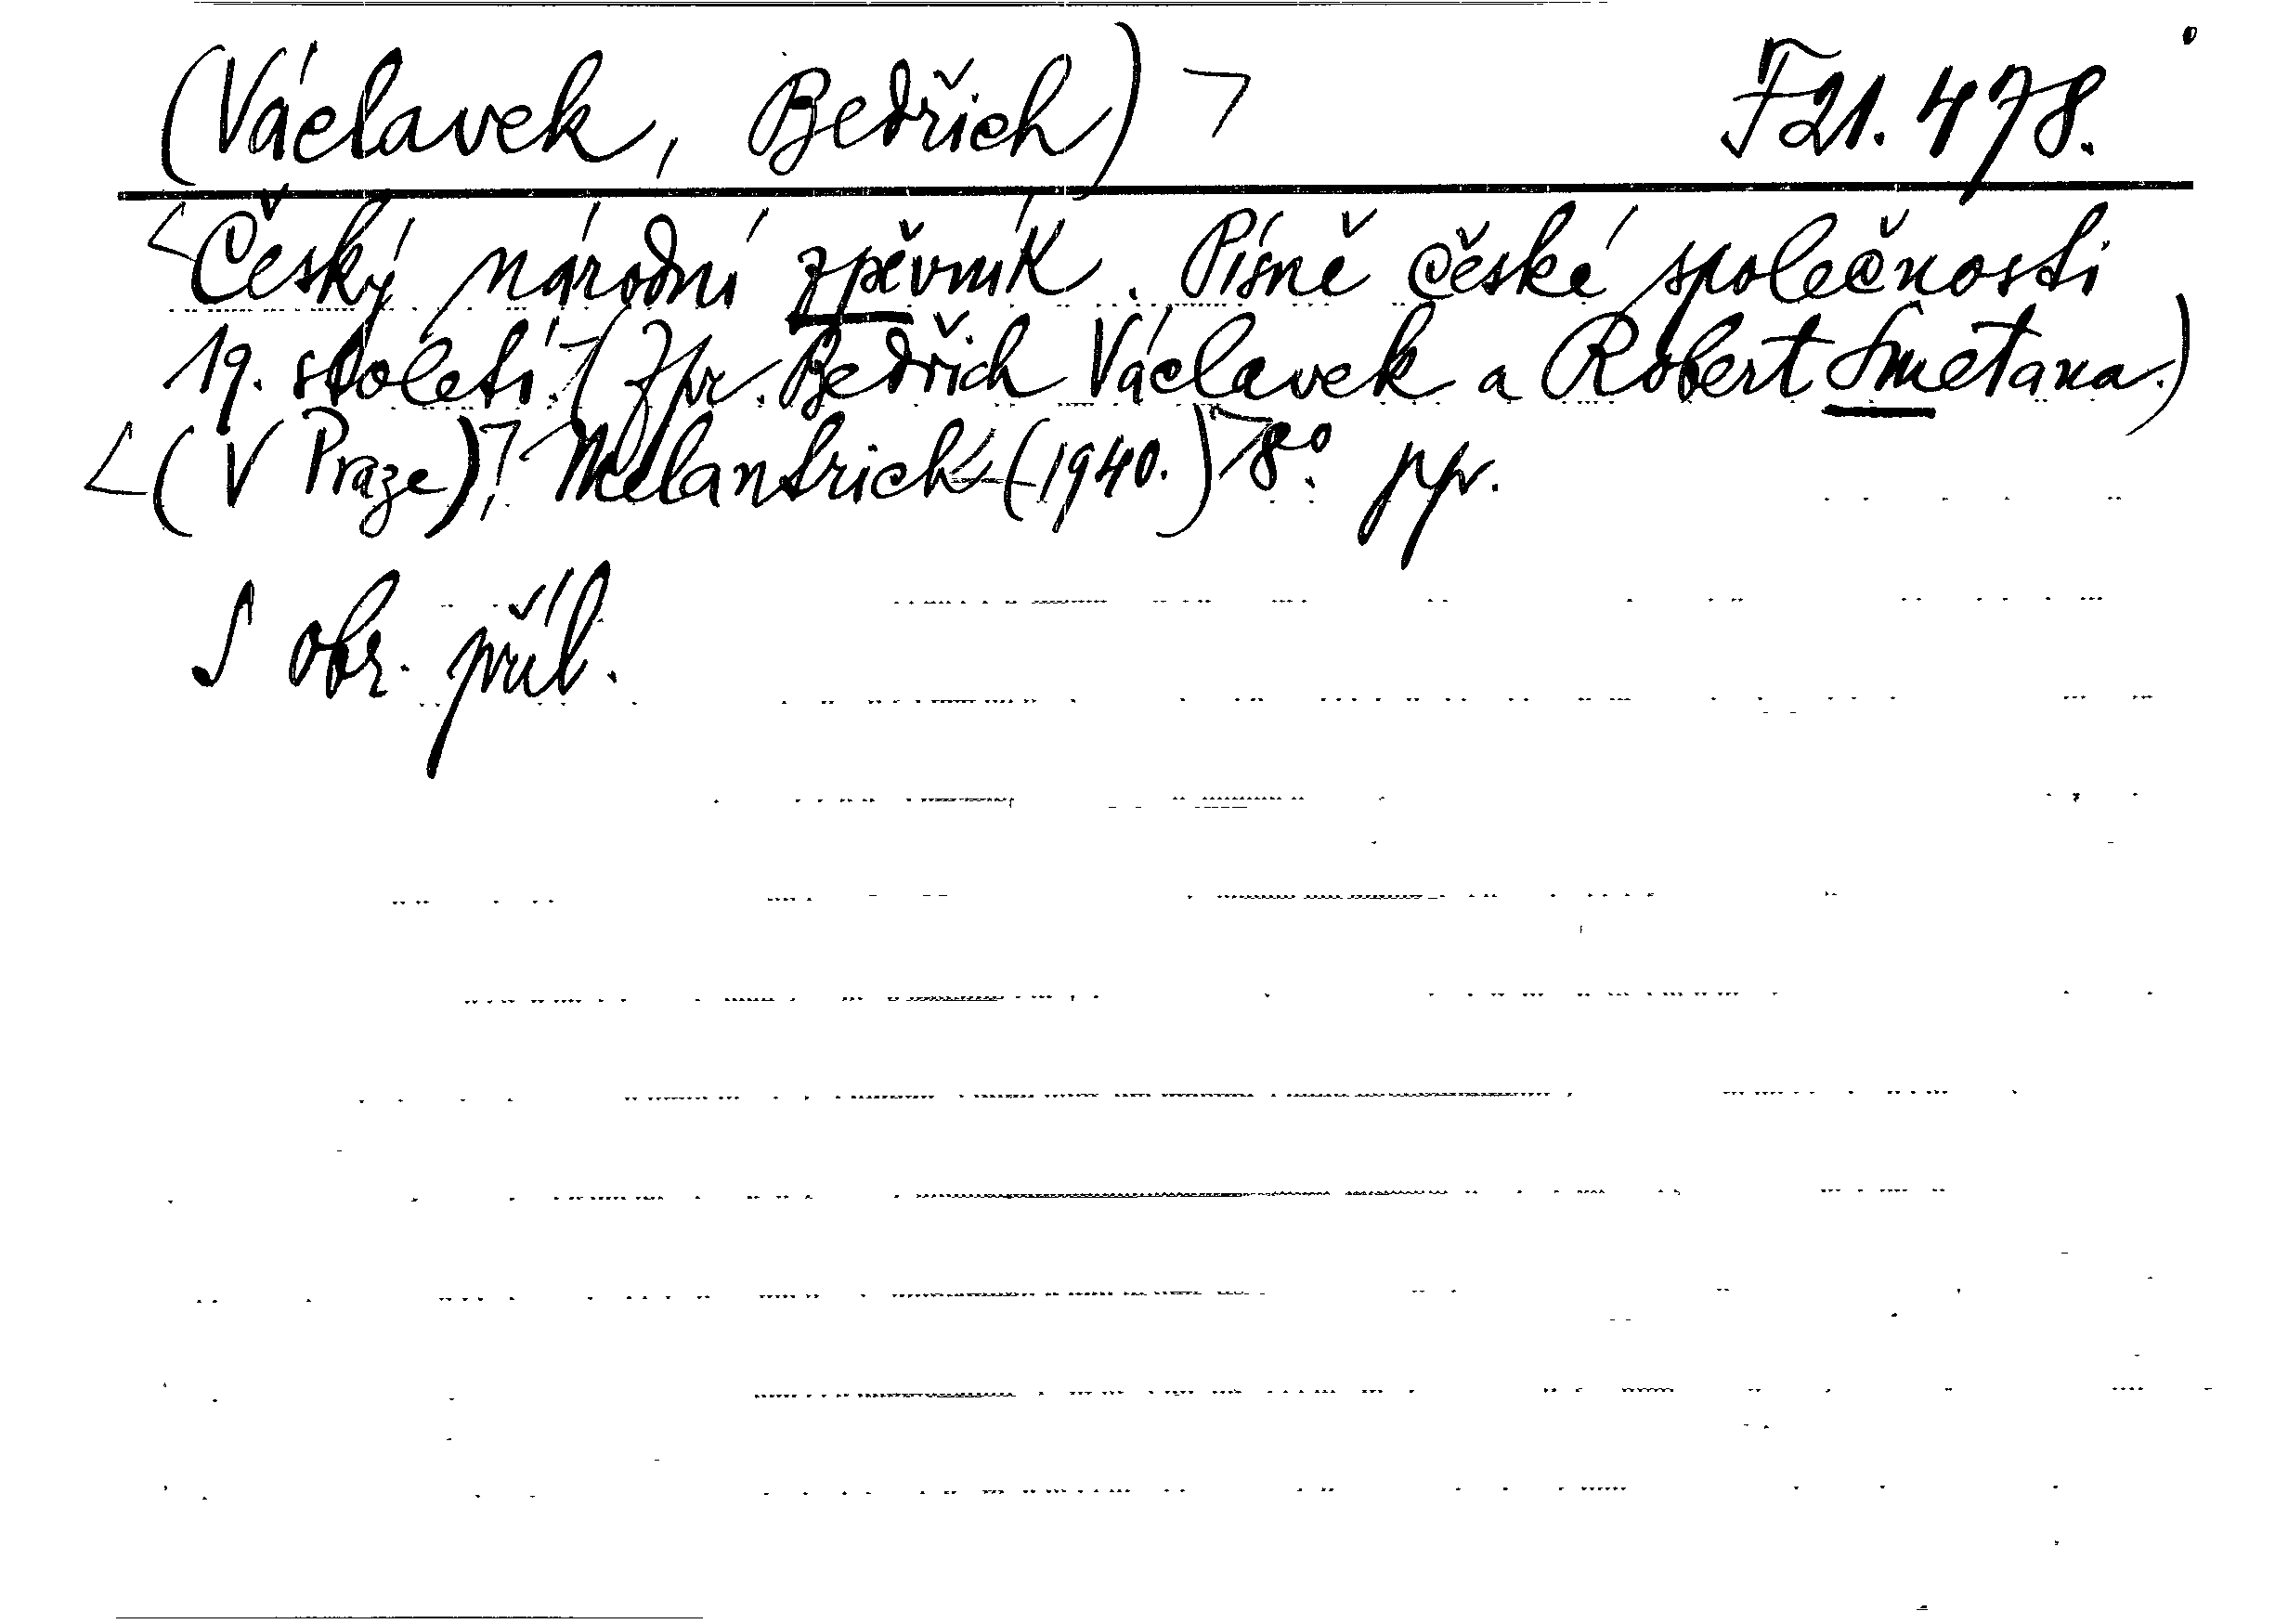 (Václavek, Bedřich) F21.478.
Český národní zpěvník. Písně české společnosti
19. století. (Zpr. Bedřich Václavek a Robert Smetana.)
(V Praze), Melantrich (1940.) 8° ppr.
S obr. příl.